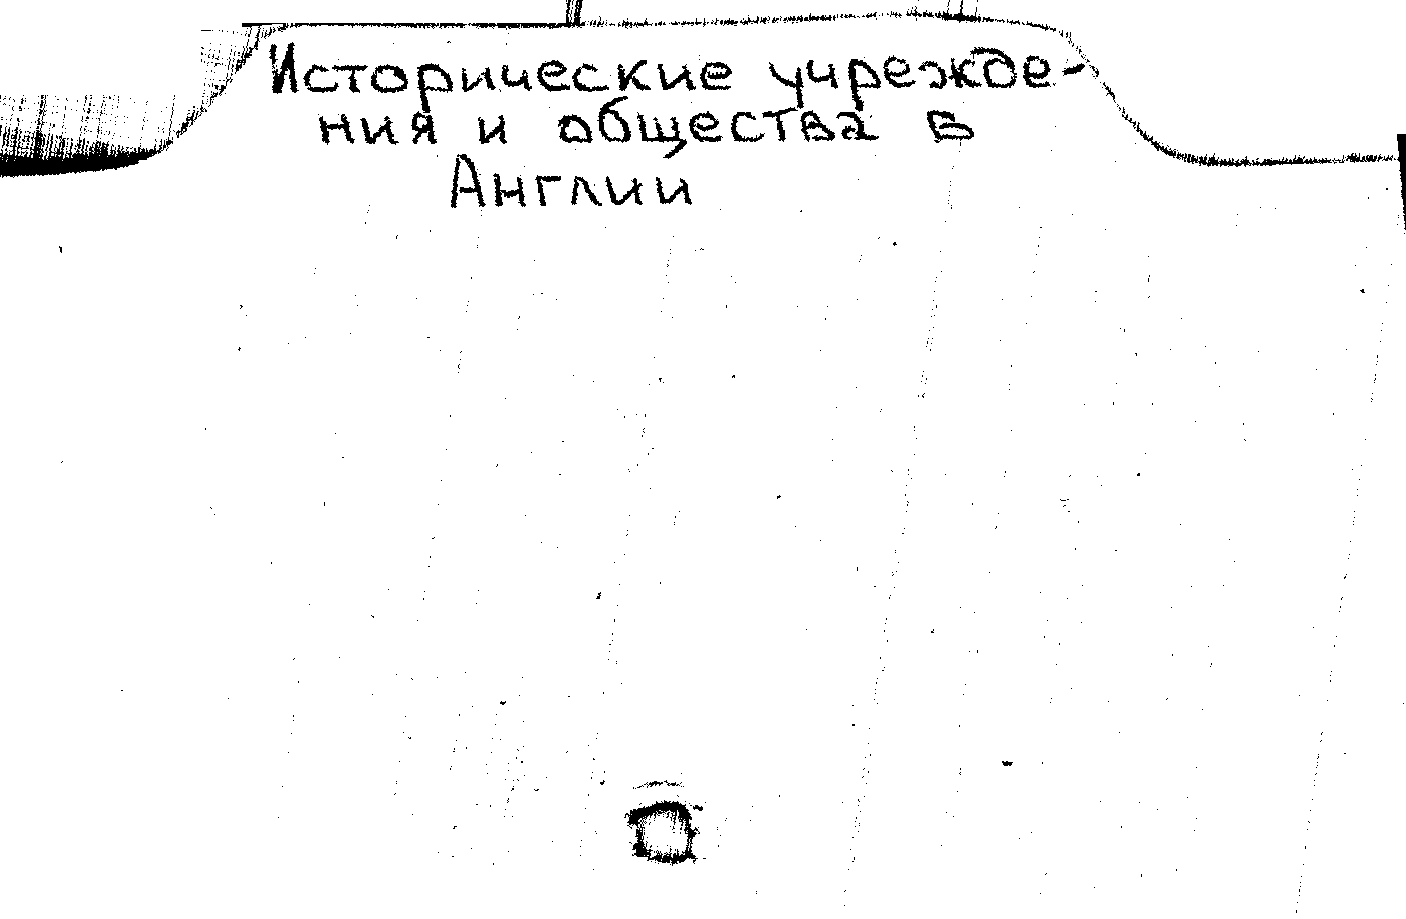 Исторические учрежде-
ния и общества в
Англии